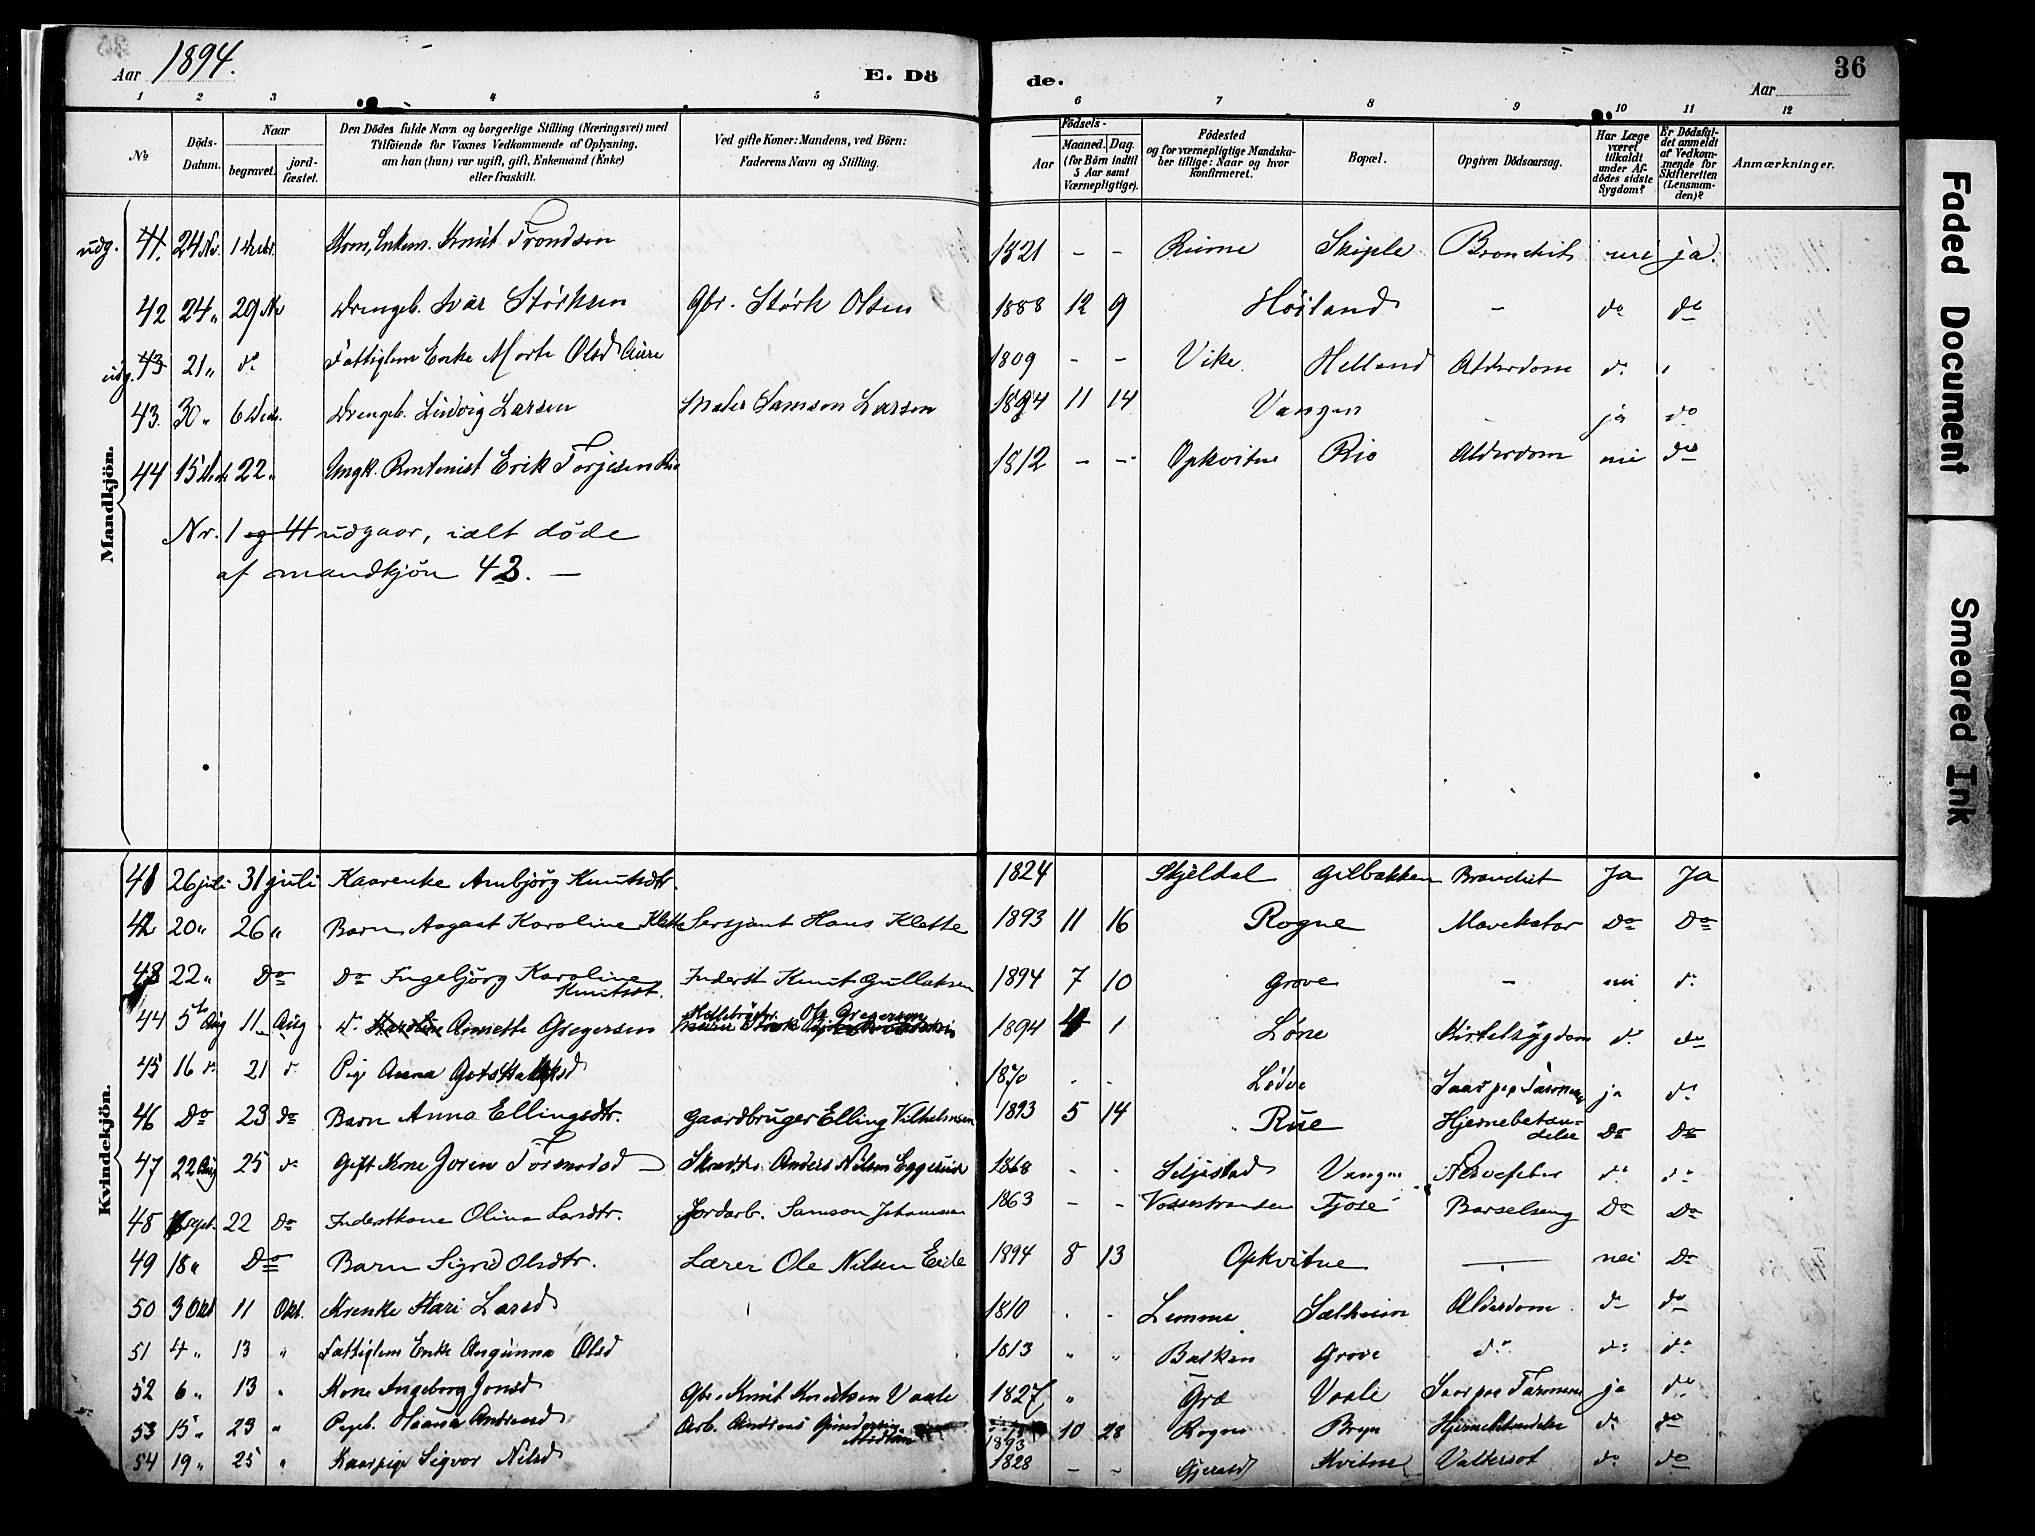 Aar 1894. E. Dö de. Aar 36
1 2 3 4 5 6 7 8 9 10 11 12
No
Döds-Datum.
Naar
begravet.
jord-fæstet.
Den Dödes fulde Navn og borgerlige Stilling (Næringsvei) med
Tilföiende for Voxnes Vedkommende af Oplysning,
om han (hun) var ugift, gift, Enkemand (Enke)
eller fraskilt.
Ved gifte Koner: Mandens, ved Börn:
Faderens Navn og Stilling.
Födsels-
Aar
Maaned. Dag.
(for Börn indtil
5 Aar samt
Værnepligtige).
Födested
og for værnepligtige Mandska-
ber tillige: Naar og hvor
konfirmeret.
Bopæl.
Opgiven Dödsaarsag.
Har Læge
været
tilkaldt
under Af-
dödes sidste
Sygdom?
Er Dödsfal-
det anmeldt
af Vedkom-
mende for
Skifteretten
(Lensman-
den)?
Anmærkninger.
Mandkjön.
udg. 41. 24 Nv. 1 Decbr. Enkem. Knut Trondsen 1821 - - Rieme Skiple Bronchit nei ja.
42 24 " 29 Nv Drengeb. Ivar Størksen Gbr. Størk Olsen 1888 12 9 Høiland - do do
udg. 43 21 " do Fattiglem Enke Marte Olsd Aure 1809 - - Vike Helland Alderdom do "
43. 30 " 6 Decb. Drengeb. Ludvig Larsen Maler Samson Larsen 1894 11 14 Vangen - ja do
44 15 Decb 22 " Ungk. Rentenist Erik Torjesen Rio 1812 - - Opkvitne Rio Alderdom nei do
Nr. 1 og 41 udgaar, ialt døde
af mandkjøn 43. -
Kvindekjön.
41 26 juli 31 juli Kaarenke Ambjörg Knutsdtr. 1824 Skjeldal Gilbakken Bronchit Ja Ja
42 20 " 26 " Barn Aagaat Karoline Klette Sersjant Hans Klette 1893 11 16 Rogne Mavekatar Do Do
43 22 " Do Do Ingebjörg Karoline Knutsdt. Inderst Knut Gullaksen 1894 7 10 Grove - nei do
44 5te Aug 11 Aug do Karoline Annette Gregersen Ole Gregersen 1894 4 1 Løne Kirtelsygdom do do
45 16 do 21 do Pige Anna Gotskalksd 1870 - - Lødve ja do
46 Do 23 do Barn Anna Ellingsdtr. Gaardbruger Elling Vilhelmsen 1893 5 14 Rue Hjernebetændelse Do Do
47 22 Aug 25 do Gift Kone Joren Tormodsd Skrædder Anders Nilsen Eggereide 1868 - - Seljestad Vangen Nervefeber do do
48 Sept. 22 Do Inderstkone Olina Larsdtr. Jordarb. Samson Johannesen 1863 - - Vossestranden Fjose Barselseng Do Do
49 18 " Do Barn Sigrid Olsdtr. Lærer Ole Nilsen Eide 1894 8 13 Opkvitne — nei Do
50 3 Okt 11 Okt. Kaarenke Kari Larsd 1810 - - Lemme Sætheim Alderdom do do
51 4 " 13 " Fattiglem Enke Angunna Olsd 1813 " " Bakken Grove do do do
52 6 " 13 " Kone Ingeborg Jonsd Gbr. Knut Knutsen Vaale 1827 " Græ Vaale ja do
53 15 " 23 " Pigeb. Hanna Andreasd Arb. Andreas Gundersen Midtun 1893 10 28 Rogne Bryn Hjernebetændelse do do
54 19 " 25 " Kaarpige Sigvor Nilsd 1828 - - Gjerald Kvitne Vattersot do do
Faded Document
Smeared Ink